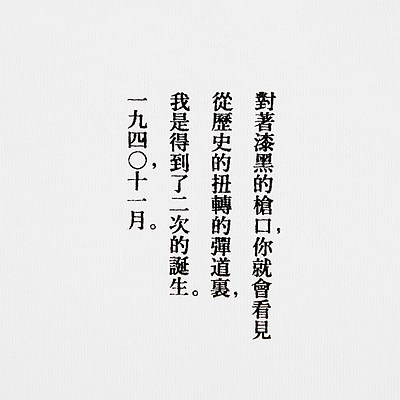 對著漆黑的槍口，你就會看見
從歷史的扭轉的彈道裏，
我是得到了二次的誕生。
一九四〇，十一月。